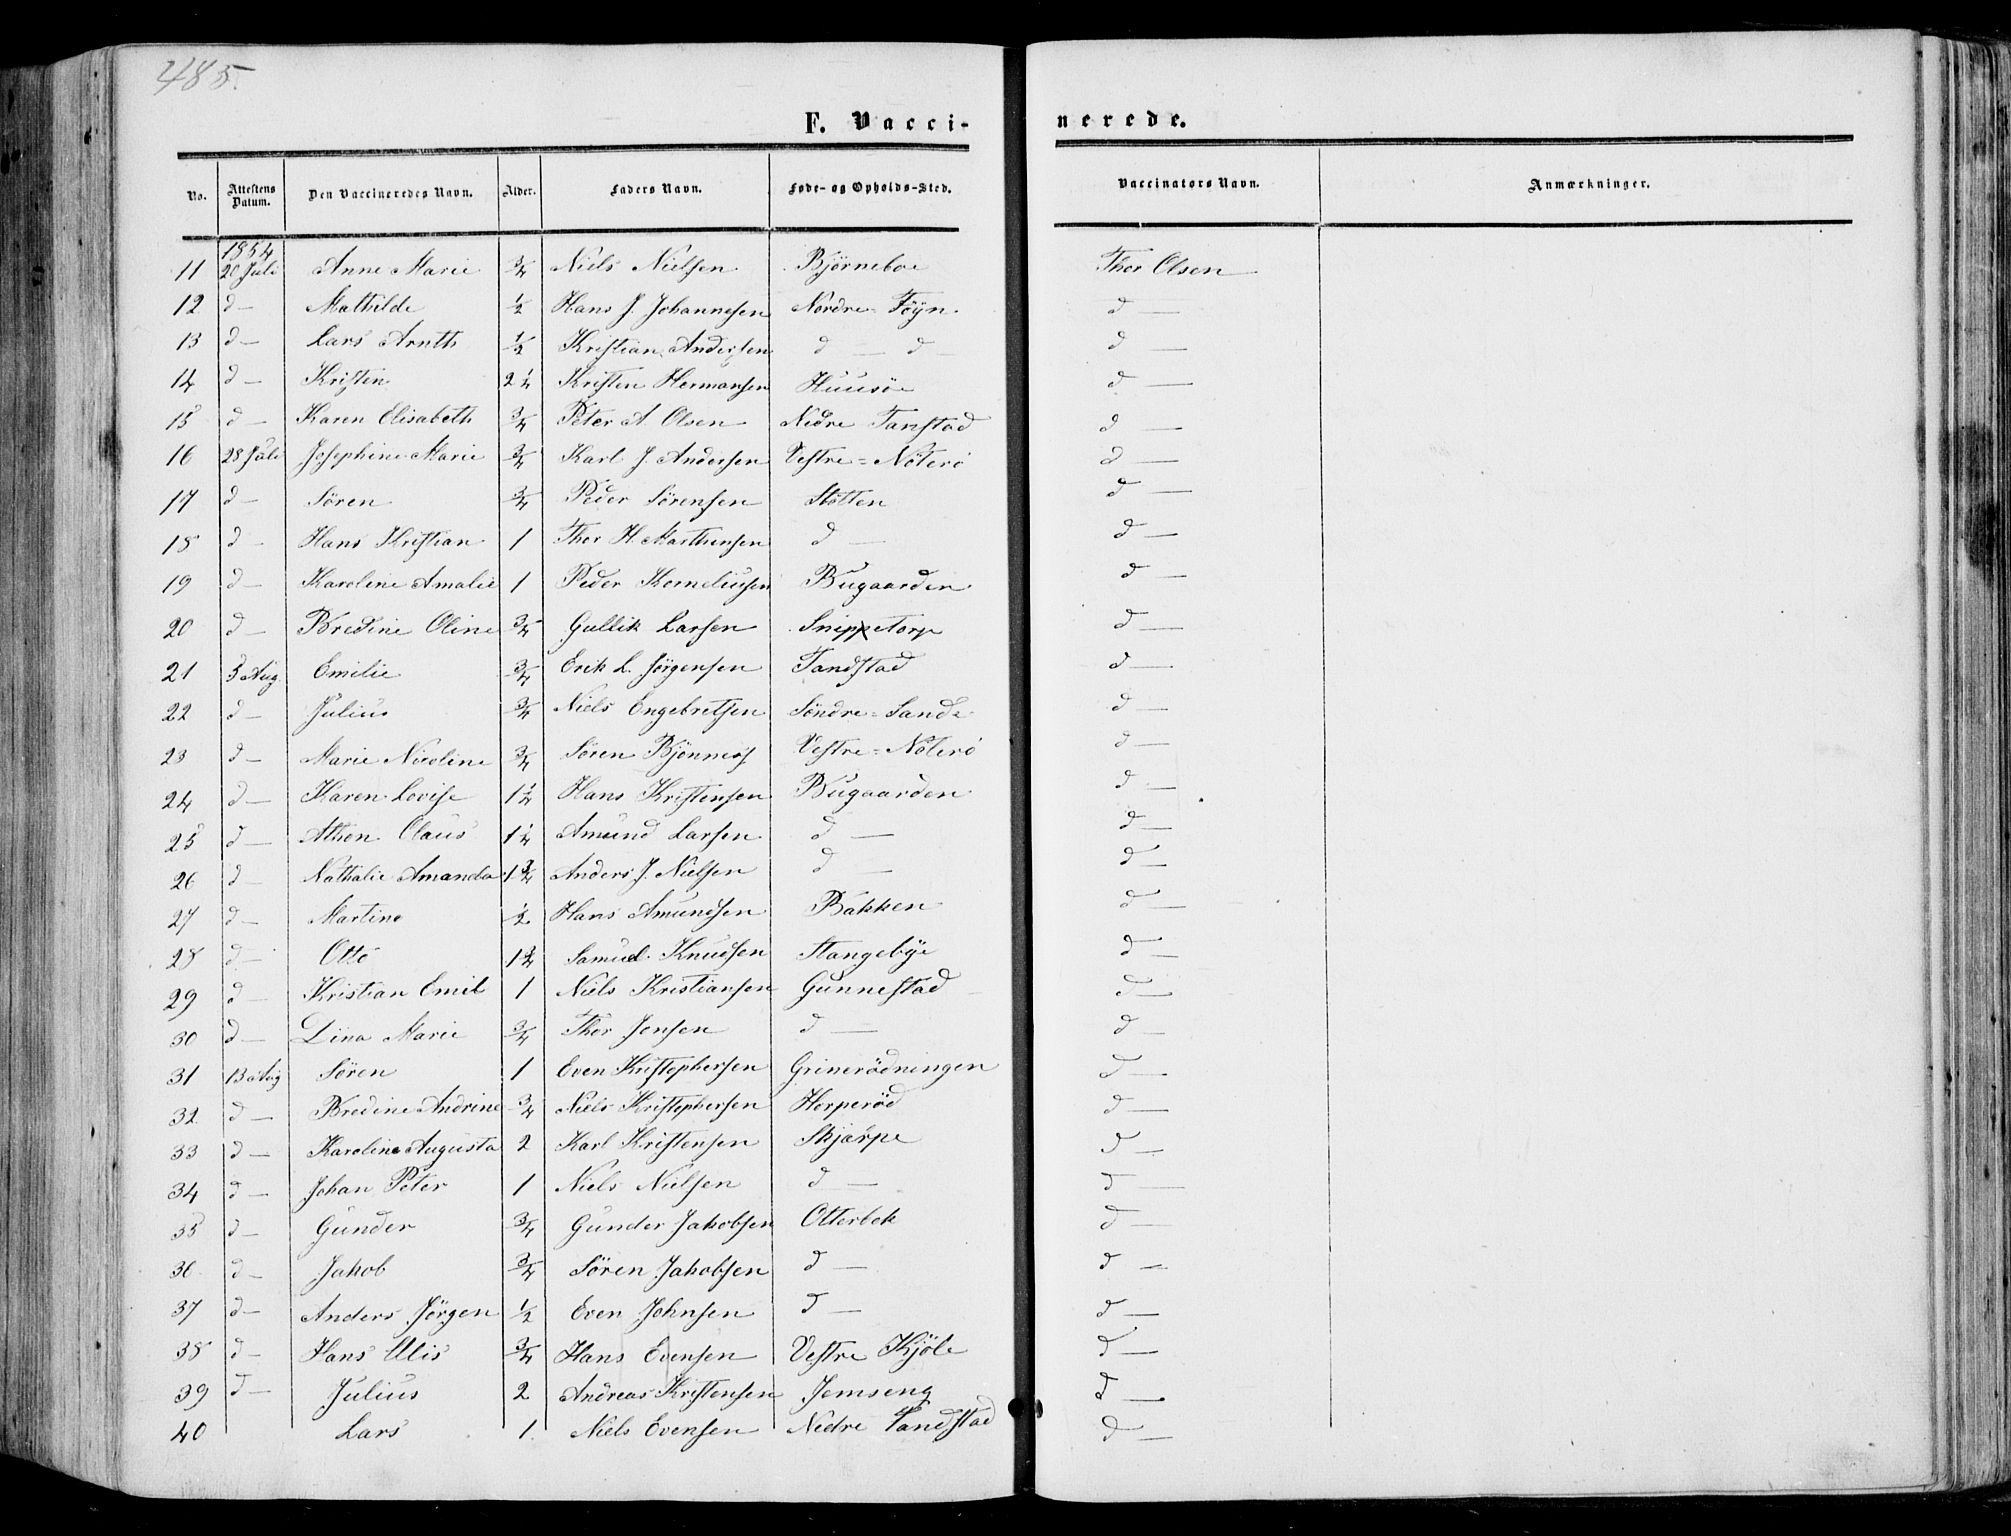 485.
F. Vacci- nerede.
No. | Attestens Datum. | Den Vaccineredes Navn. | Alder. | Faders Navn. | Føde- og Opholds-Sted. | Vaccinators Navn. | Anmærkninger.
1854
11 | 20 Juli | Anne Marie | 3/4 | Niels Nielsen | Bjørneboe | Thor Olsen
12 | d — | Mathilde | 1/2 | Hans J. Johannesen | Nordre-Føyn | d —
13 | d — | Lars Arnth | 1/2 | Kristian Andersen | d — d — | d —
14 | d — | Kristin | 2 1/4 | Kristen Hermansen | Huusøe | d —
15 | d — | Karen Elisabeth | 3/4 | Peter A. Olsen | Nedre Tanstad | d —
16 | 28 Juli | Josephine Marie | 3/4 | Karl J. Andersen | Vestre-Nøterø | d —
17 | d — | Sören | 3/4 | Peder Sörensen | Stotten | d —
18 | d — | Hans Kristian | 1 | Thor H. Marthinsen | d — | d —
19 | d — | Karoline Amalie | 1 | Peder Korneliusen | Bugaarden | d —
20 | d — | Bredine Oline | 3/4 | Gullik Larsen | Snippetorp | d —
21 | 5 Aug | Emilie | 3/4 | Erik L. Jørgensen | Tandstad | d —
22 | d — | Julius | 3/4 | Niels Engebretsen | Söndre-Sande | d —
23 | d — | Marie Nicoline | 3/4 | Søren Bjønnes | Vestre-Nøterø | d —
24 | d — | Karen Lovise | 1 1/4 | Hans Kristensen | Bugaarden | d —
25 | d — | Athon Claus | 1 1/4 | Amund Larsen | d — | d —
26 | d — | Nathalie Amanda | 1 3/4 | Anders J. Nielsen | d — | d —
27 | d — | Martine | 1/2 | Hans Amundsen | Bakken | d —
28 | d — | Otto | 1 3/4 | Samuel Knudsen | Stangebye | d —
29 | d — | Kristian Emil | 1 | Niels Kristiansen | Gunnestad | d —
30 | d — | Lina Marie | 3/4 | Thor Jensen | d — | d —
31 | 13 Aug | Sören | 1 | Even Kristophersen | Grinerødningen | d —
32 | d — | Bredine Andrine | 3/4 | Niels Kristophersen | Horperød | d —
33 | d — | Karoline Augusta | 2 | Karl Kristensen | Skjærpe | d —
34 | d — | Johan Peter | 1 | Niels Nielsen | d — | d —
35 | d — | Gunder | 3/4 | Gunder Jakobsen | Otterbek | d —
36 | d — | Jakob | 3/4 | Sören Jakobsen | d — | d —
37 | d — | Anders Jörgen | 1/2 | Even Johnsen | d — | d —
38 | d — | Hans Elis | 3/4 | Hans Evensen | Vestre Kjøle | d —
39 | d — | Julius | 2 | Andreas Kristensen | Jemseng | d —
40 | Lars | 1 | Niels Evensen | Nedre Tandstad | d —